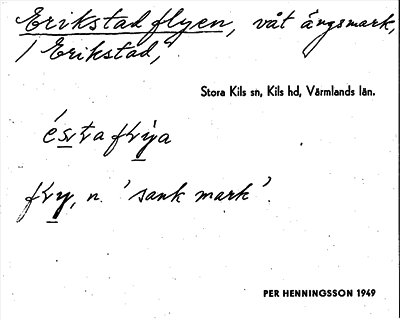 Erikstad flyen, våt ängsmark,
/ Erikstad,
Stora Kils sn, Kils hd, Värmlands län.
n. 'sank mark'.
PER HENNINGSSON 1949